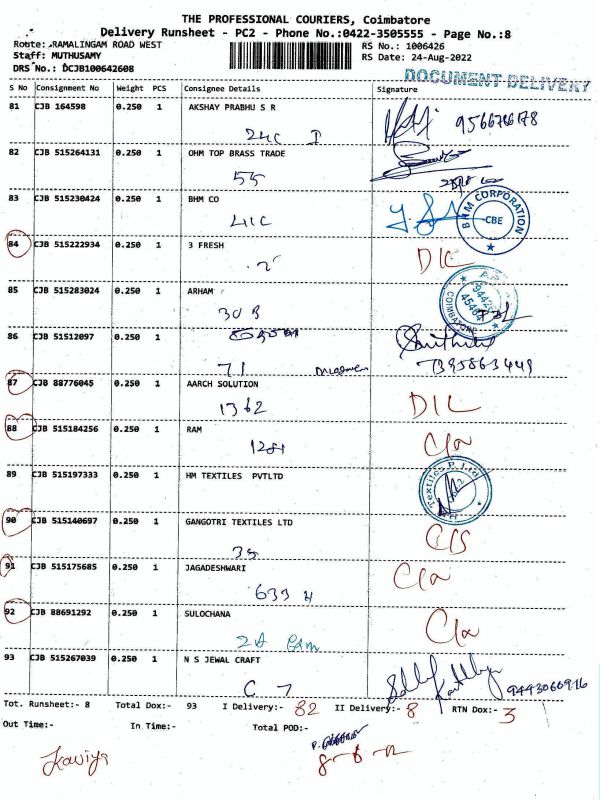 THE PROFESSIONAL COURIERS, Coimbatore
Delivery Runsheet - PC2 - Phone No.:0422-3505555 - Page No.:8
Route: RAMALINGAM ROAD WEST RS No.: 1006426
Staff: MUTHUSAMY RS Date: 24-Aug-2022
DRS No.: DCJB100642608 DOCUMENT DELIVERY
S No Consignment No Weight PCS Consignee Details Signature
81 CJB 164598 0.250 1 AKSHAY PRABHU S R
24C I
82 CJB 515264131 0.250 1 OHM TOP BRASS TRADE
55
83 CJB 515230424 0.250 1 BHM CO BHM CORPORATION CBE
41C
84 CJB 515222934 0.250 1 3 FRESH D/L
85 CJB 515283024 0.250 1 ARHAM COIMBATORE
30 B
86 CJB 51512097 0.250 1
71 7395863449
87 CJB 88776045 0.250 1 AARCH SOLUTION D/L
1362
88 CJB 515184256 0.250 1 RAM C/a
89 CJB 515197333 0.250 1 HM TEXTILES PVTLTD HM Textiles P. Ltd
90 CJB 515140697 0.250 1 GANGOTRI TEXTILES LTD
35
91 CJB 515175685 0.250 1 JAGADESHWARI C/a
633
92 CJB 88691292 0.250 1 SULOCHANA C/a
93 CJB 515267039 0.250 1 N S JEWAL CRAFT
C 7
Tot. Runsheet:- 8 Total Dox:- 93 I Delivery:- 82 II Delivery:- 8 RTN Dox:- 3
Out Time:- In Time:- Total POD:-
Kaviya